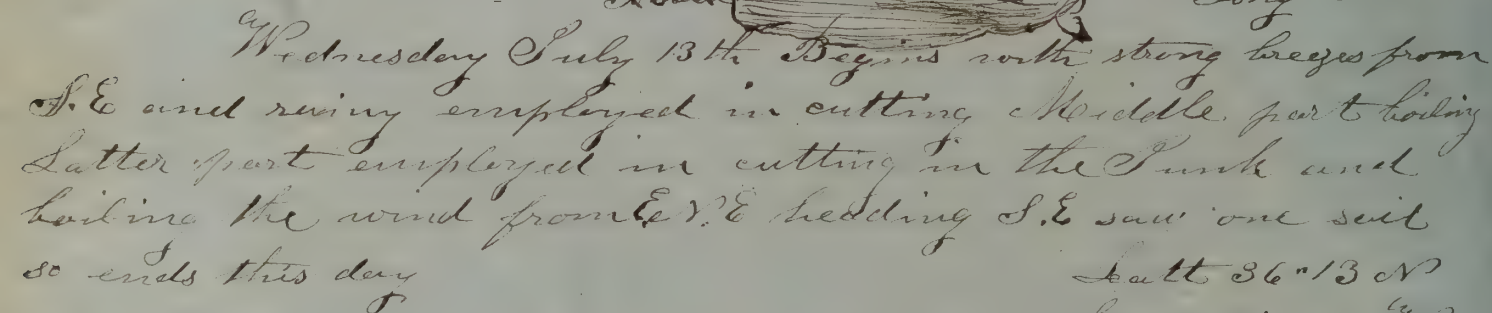 Wednesday July 13th Begins with strong breezes from
S.E and rainy employed in cutting Middle part boiling
Latter part employed in cutting in the Junk and
boiling the wind from E N.E heading S.E saw one sail
so ends this day
Latt 36"13 N